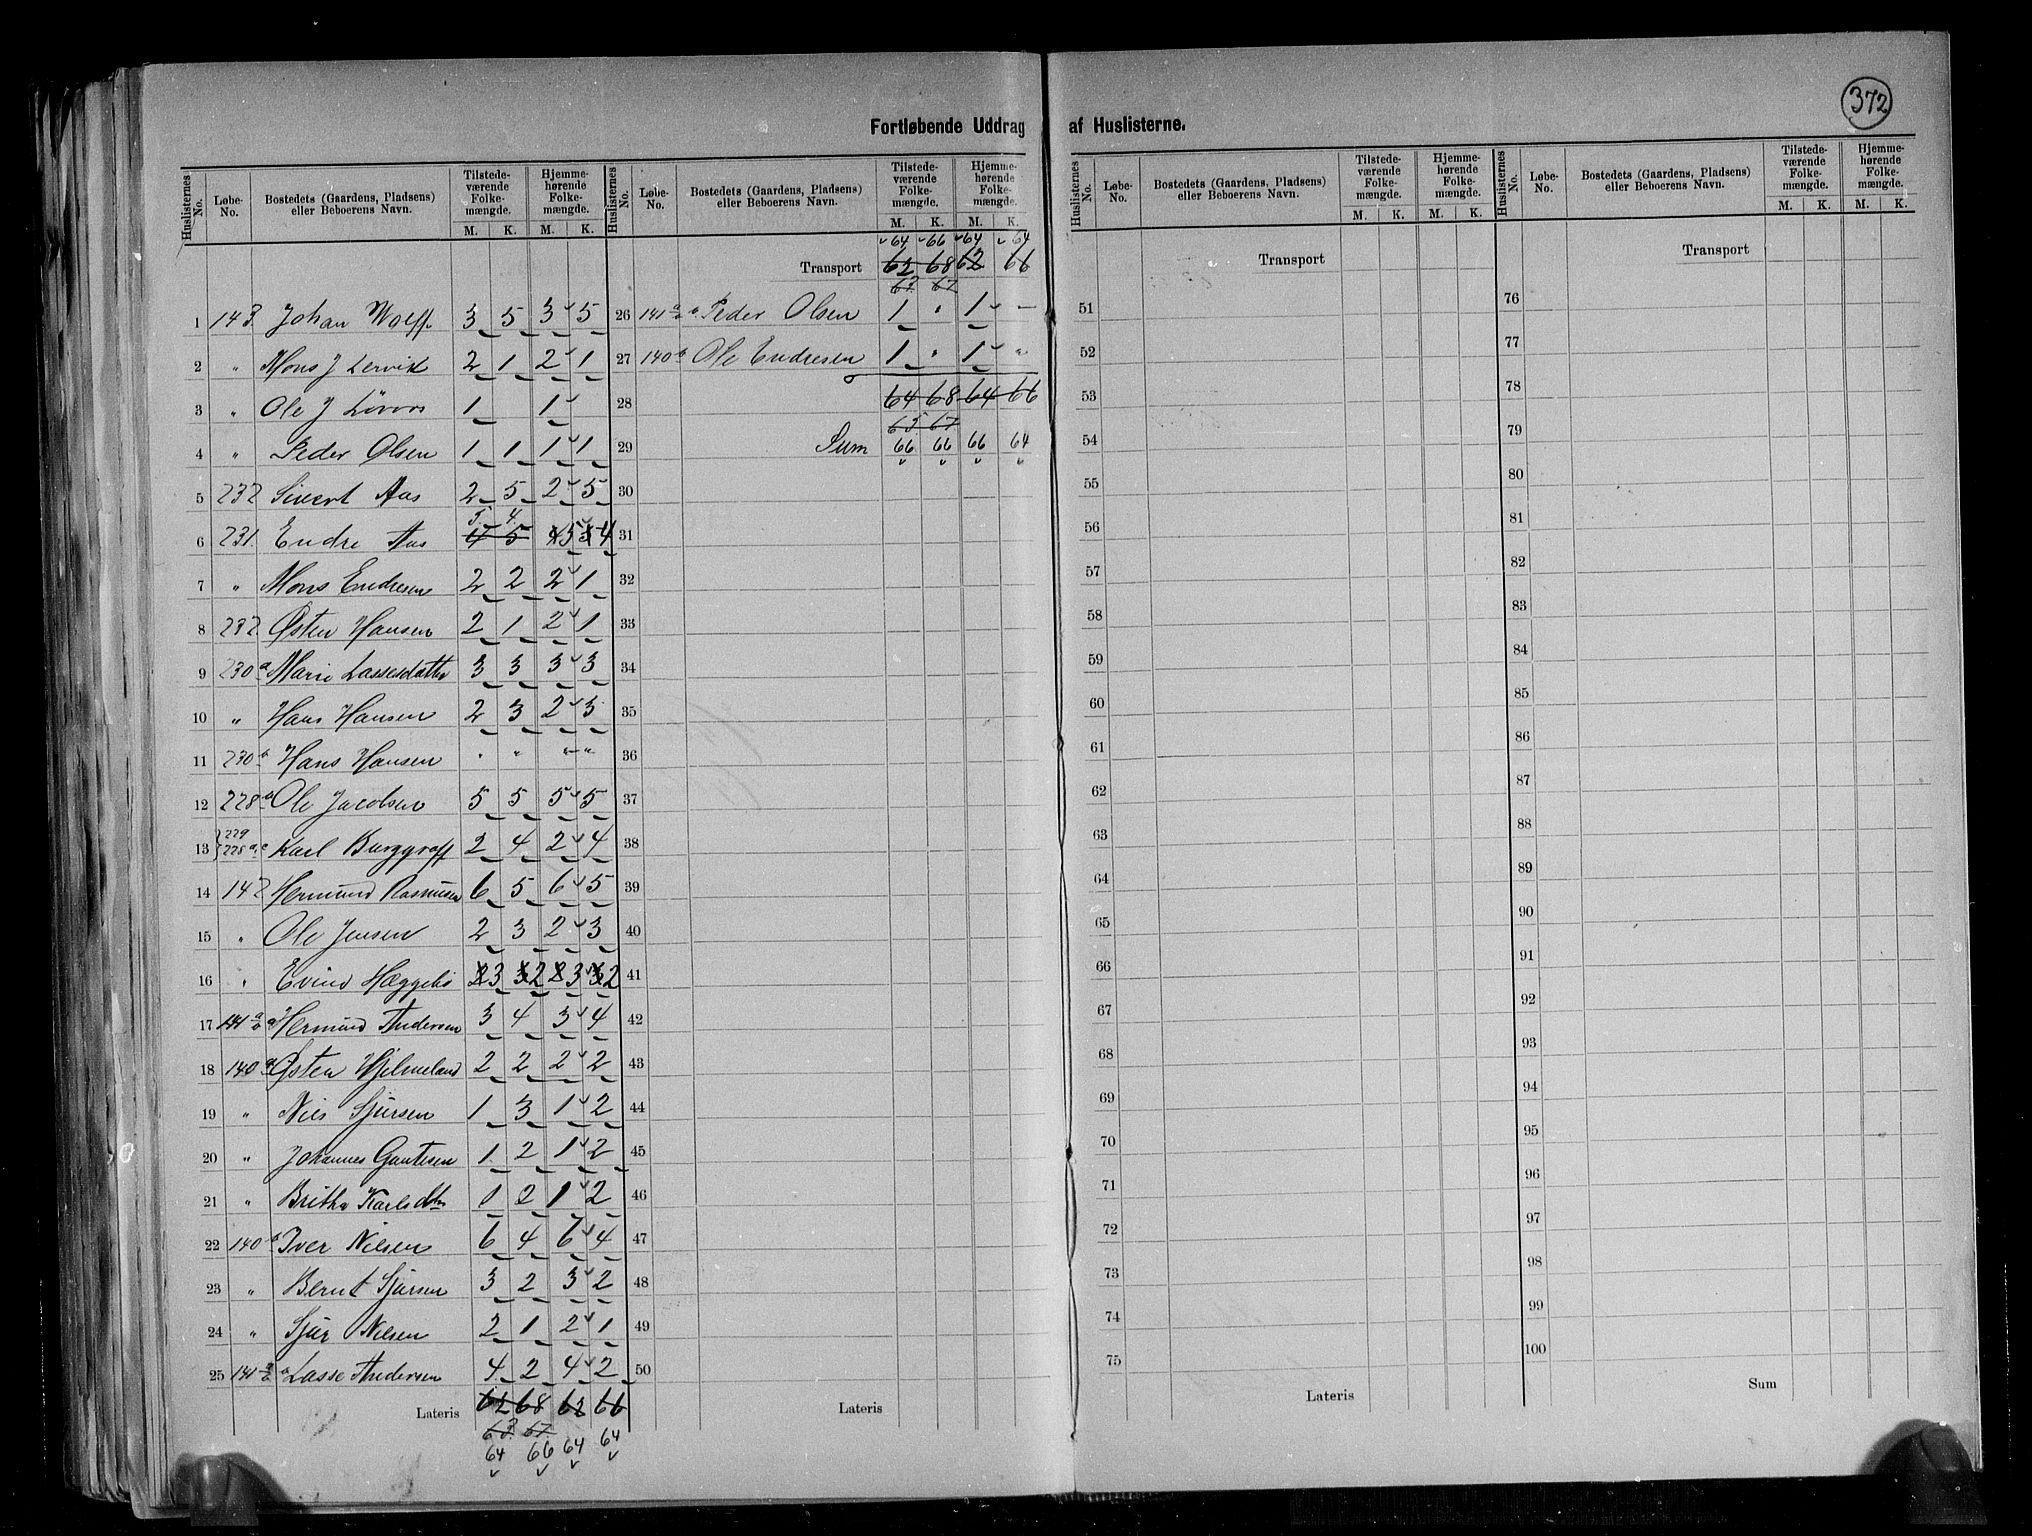 372
Fortløbende Uddrag af Huslisterne.
Huslisternes No. Løbe-No. Bostedets (Gaardens, Pladsens) eller Beboerens Navn. Tilstede-værende Folke-mængde. M. K. Hjemme-hørende Folke-mængde. M. K.
1 143 Johan Wolff 3 5 3 5
2 " Mons J Lervik 2 1 2 1
3 " Ole J 1 1
4 " Peder Olsen 1 1 1 1
5 232 Sivert Aas 2 5 2 5
5 4
6 231 Endre Aas 4 5 4 5 5 4
7 " Mons Endresen 2 2 2 1
8 232 Østen Hansen 2 1 2 1
9 230 a Marie Lassesdatter 3 3 3 3
10 " Hans Hansen 2 3 2 3
11 230 b Hans Hansen " " " "
12 228 b Ole Jacobsen 5 5 5 5
229
13 228 a Karl Burggraff 2 4 2 4
14 142 Hermund Rasmussen 6 5 6 5
15 " Ole Jensen 2 3 2 3
16 " Evind Hæggebø 2 3 3 2 2 3 3 2
17 141 a Hermund Andersen 3 4 3 4
18 140 a Østen Hjelmeland 2 2 2 2
19 " Nils Sjursen 1 3 1 2
20 " Johannes Gautesen 1 2 1 2
21 " Britha Karlsdtr 0 2 1 2
22 140 b Iver Nilsen 6 4 6 4
23 " Bernt Sjursen 3 2 3 2
24 " Sjur Nilsen 2 1 2 1
25 141 a Lasse Andersen 4 2 4 2
Lateris 62 68 62 66
63 67
64 66 64 64
Huslisternes No. Løbe-No. Bostedets (Gaardens, Pladsens) eller Beboerens Navn. Tilstede-værende Folke-mængde. M. K. Hjemme-hørende Folke-mængde. M. K.
64 66 64 64
Transport 62 68 62 66
63 67
26 141 a Peder Olsen 1 " 1 —
27 140 b Ole Endresen 1 " 1 "
28 64 68 64 66
65 67
29 Sum 66 66 66 64
30
31
32
33
34
35
36
37
38
39
40
41
42
43
44
45
46
47
48
49
50
Lateris
Huslisternes No. Løbe-No. Bostedets (Gaardens, Pladsens) eller Beboerens Navn. Tilstede-værende Folke-mængde. M. K. Hjemme-hørende Folke-mængde. M. K.
Transport
51
52
53
54
55
56
57
58
59
60
61
62
63
64
65
66
67
68
69
70
71
72
73
74
75
Lateris
Huslisternes No. Løbe-No. Bostedets (Gaardens, Pladsens) eller Beboerens Navn. Tilstede-værende Folke-mængde. M. K. Hjemme-hørende Folke-mængde. M. K.
Transport
76
77
78
79
80
81
82
83
84
85
86
87
88
89
90
91
92
93
94
95
96
97
98
99
100
Sum